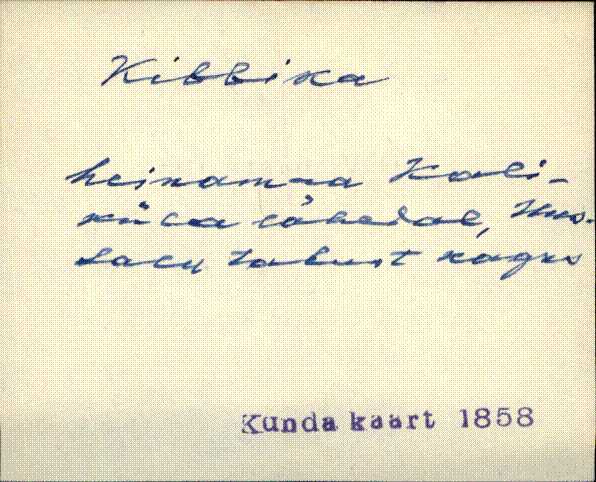 Kibbika
heinamaa Kali-
küla lähedal, Uus-
talust kagus
Kunda kaart 1858